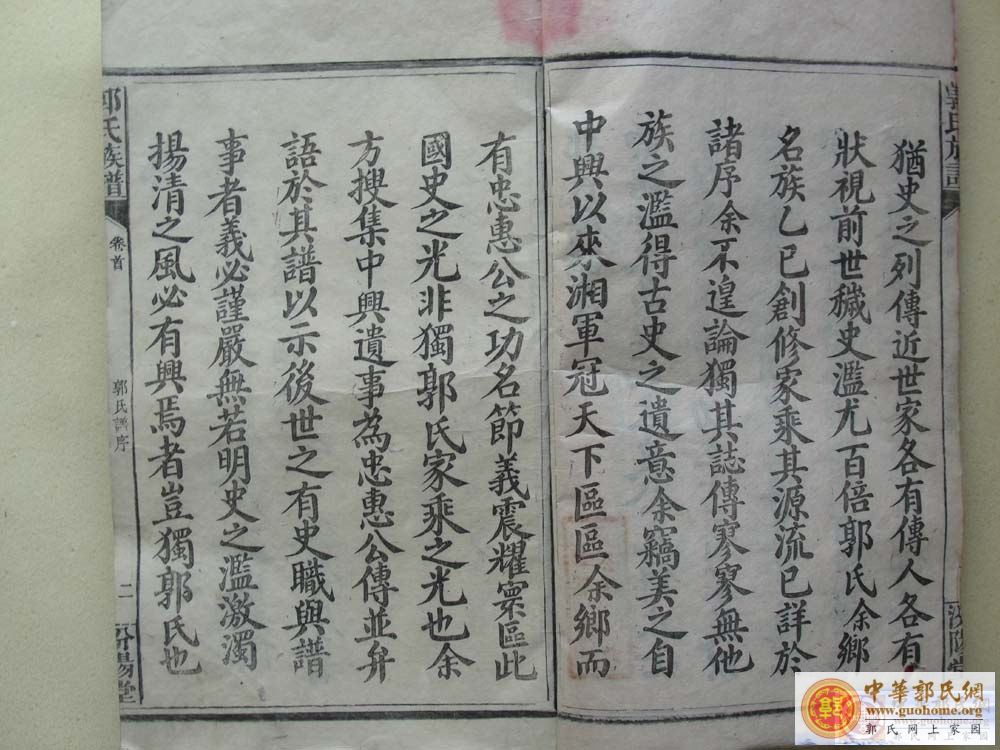 猶史之列傳近世家各有傳人各有
狀視前世穢史濫尤百倍郭氏余鄉
名族乙巳創修家乘其源流已詳於
諸序余不遑論獨其誌傳寥寥無他
族之濫得古史之遺意余竊美之自
中興以來湘軍冠天下區區余鄉而
有忠惠公之功名節義震耀寰區此
國史之光非獨郭氏家乘之光也余
方搜集中興遺事為忠惠公傳並弁
語於其譜以示後世之有史職與譜
事者義必謹嚴無若明史之濫激濁
揚清之風必有興焉者豈獨郭氏也
郭氏族譜
卷首
郭氏譜序
二
汾陽堂
中華郭氏網
www.guohome.org
郭氏網上家園